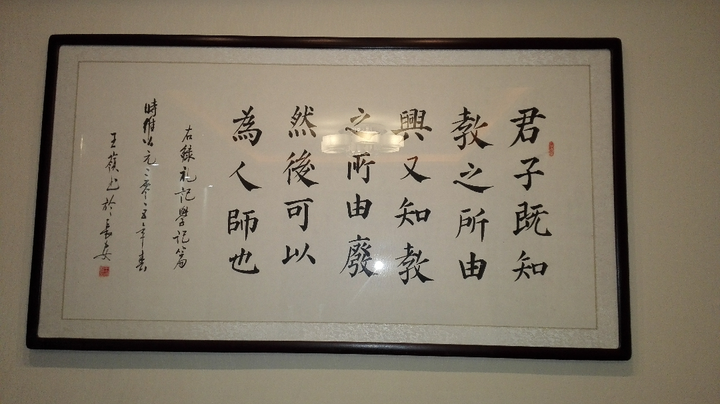 君子既知
教之所由
興又知教
之所由廢
然後可以
為人師也
右錄禮記學記篇
時維公元二零一五年春
王 於長安